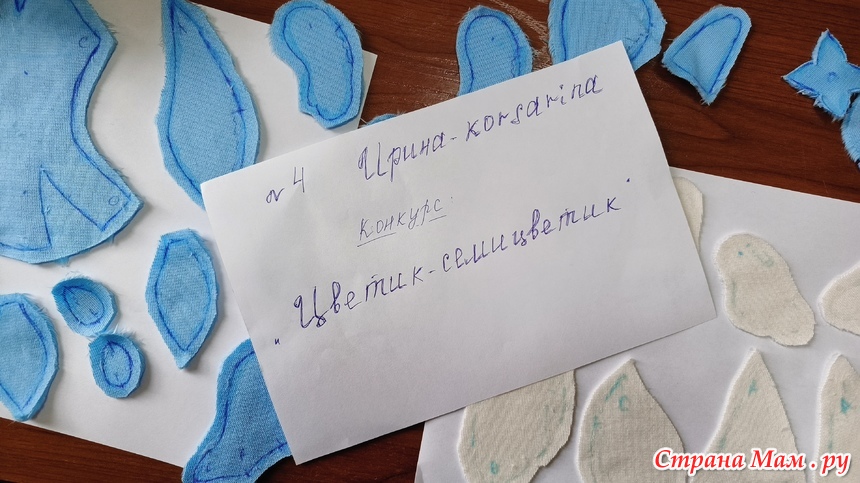 №4 Ирина-korsarina
Конкурс:
"Цветик-семицветик"
Страна Мам.ру